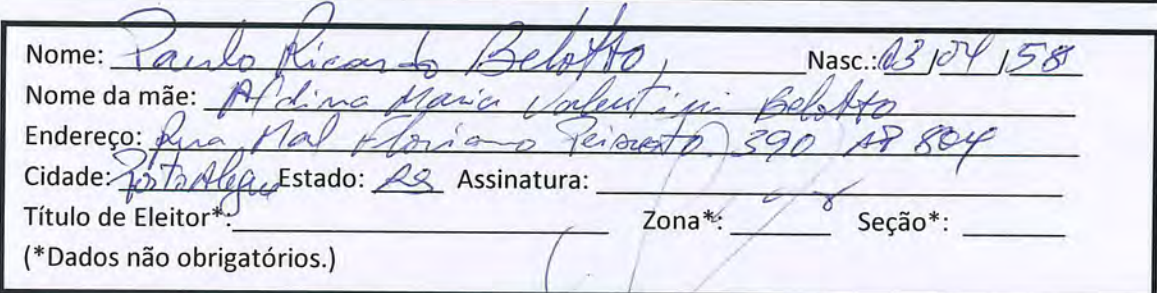 Nome: Paulo Ricardo Belotto, Nasc.: 03/04/58
Nome da mãe: Aldina Maria Valentini Belotto
Endereço: Rua Mal Floriano Peixoto 390 AP 804
Cidade: Porto Alegre Estado: RS Assinatura:
Título de Eleitor*: Zona*: Seção*:
(*Dados não obrigatórios.)